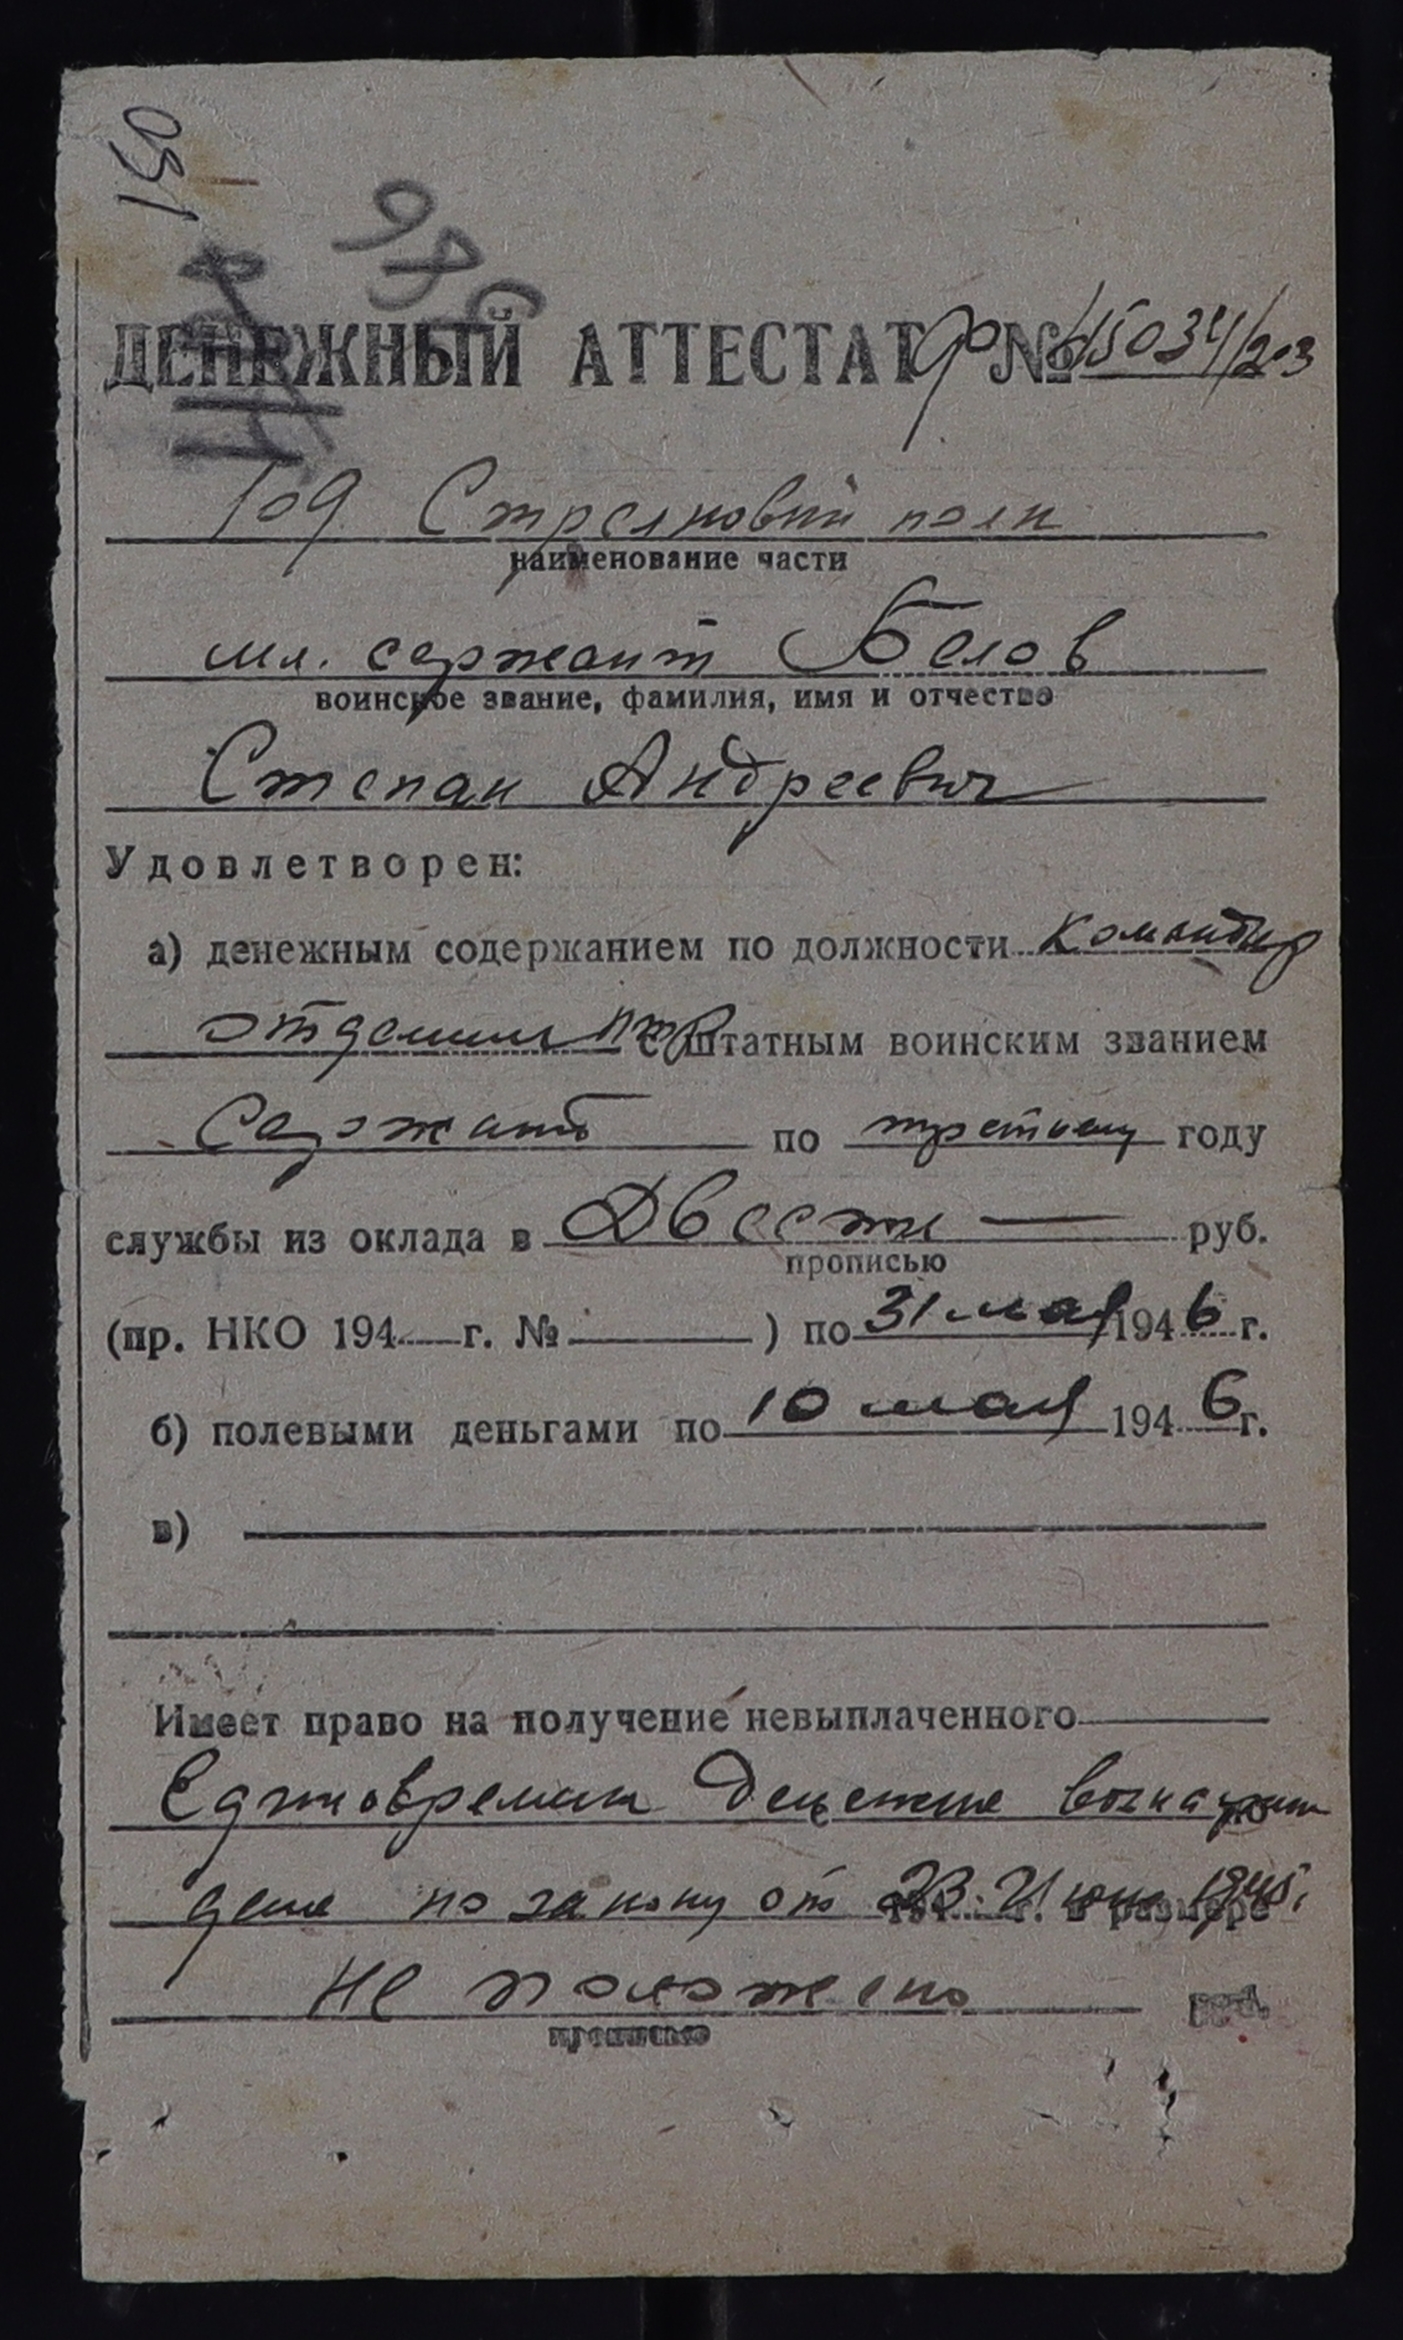 150
976
ДЕНЕЖНЫЙ АТТЕСТАТ № 15034/203
109 Стрелковый полк
наименование части
мл. сержант Белов
воинское звание, фамилия, имя и отчество
Степан Андреевич
Удовлетворен:
а) денежным содержанием по должности командир
отделения птр с штатным воинским званием
Сержант по третьему году
службы из оклада в Двести — руб.
прописью
(пр. НКО 194 г. № ) по 31 мая 1946 г.
б) полевыми деньгами по 10 мая 1946 г.
в)
Имеет право на получение невыплаченного
Единовремен денежное вознаграж
дение по закону от 23 июня 1945г.
194 г. в размере
не положено руб.
прописью